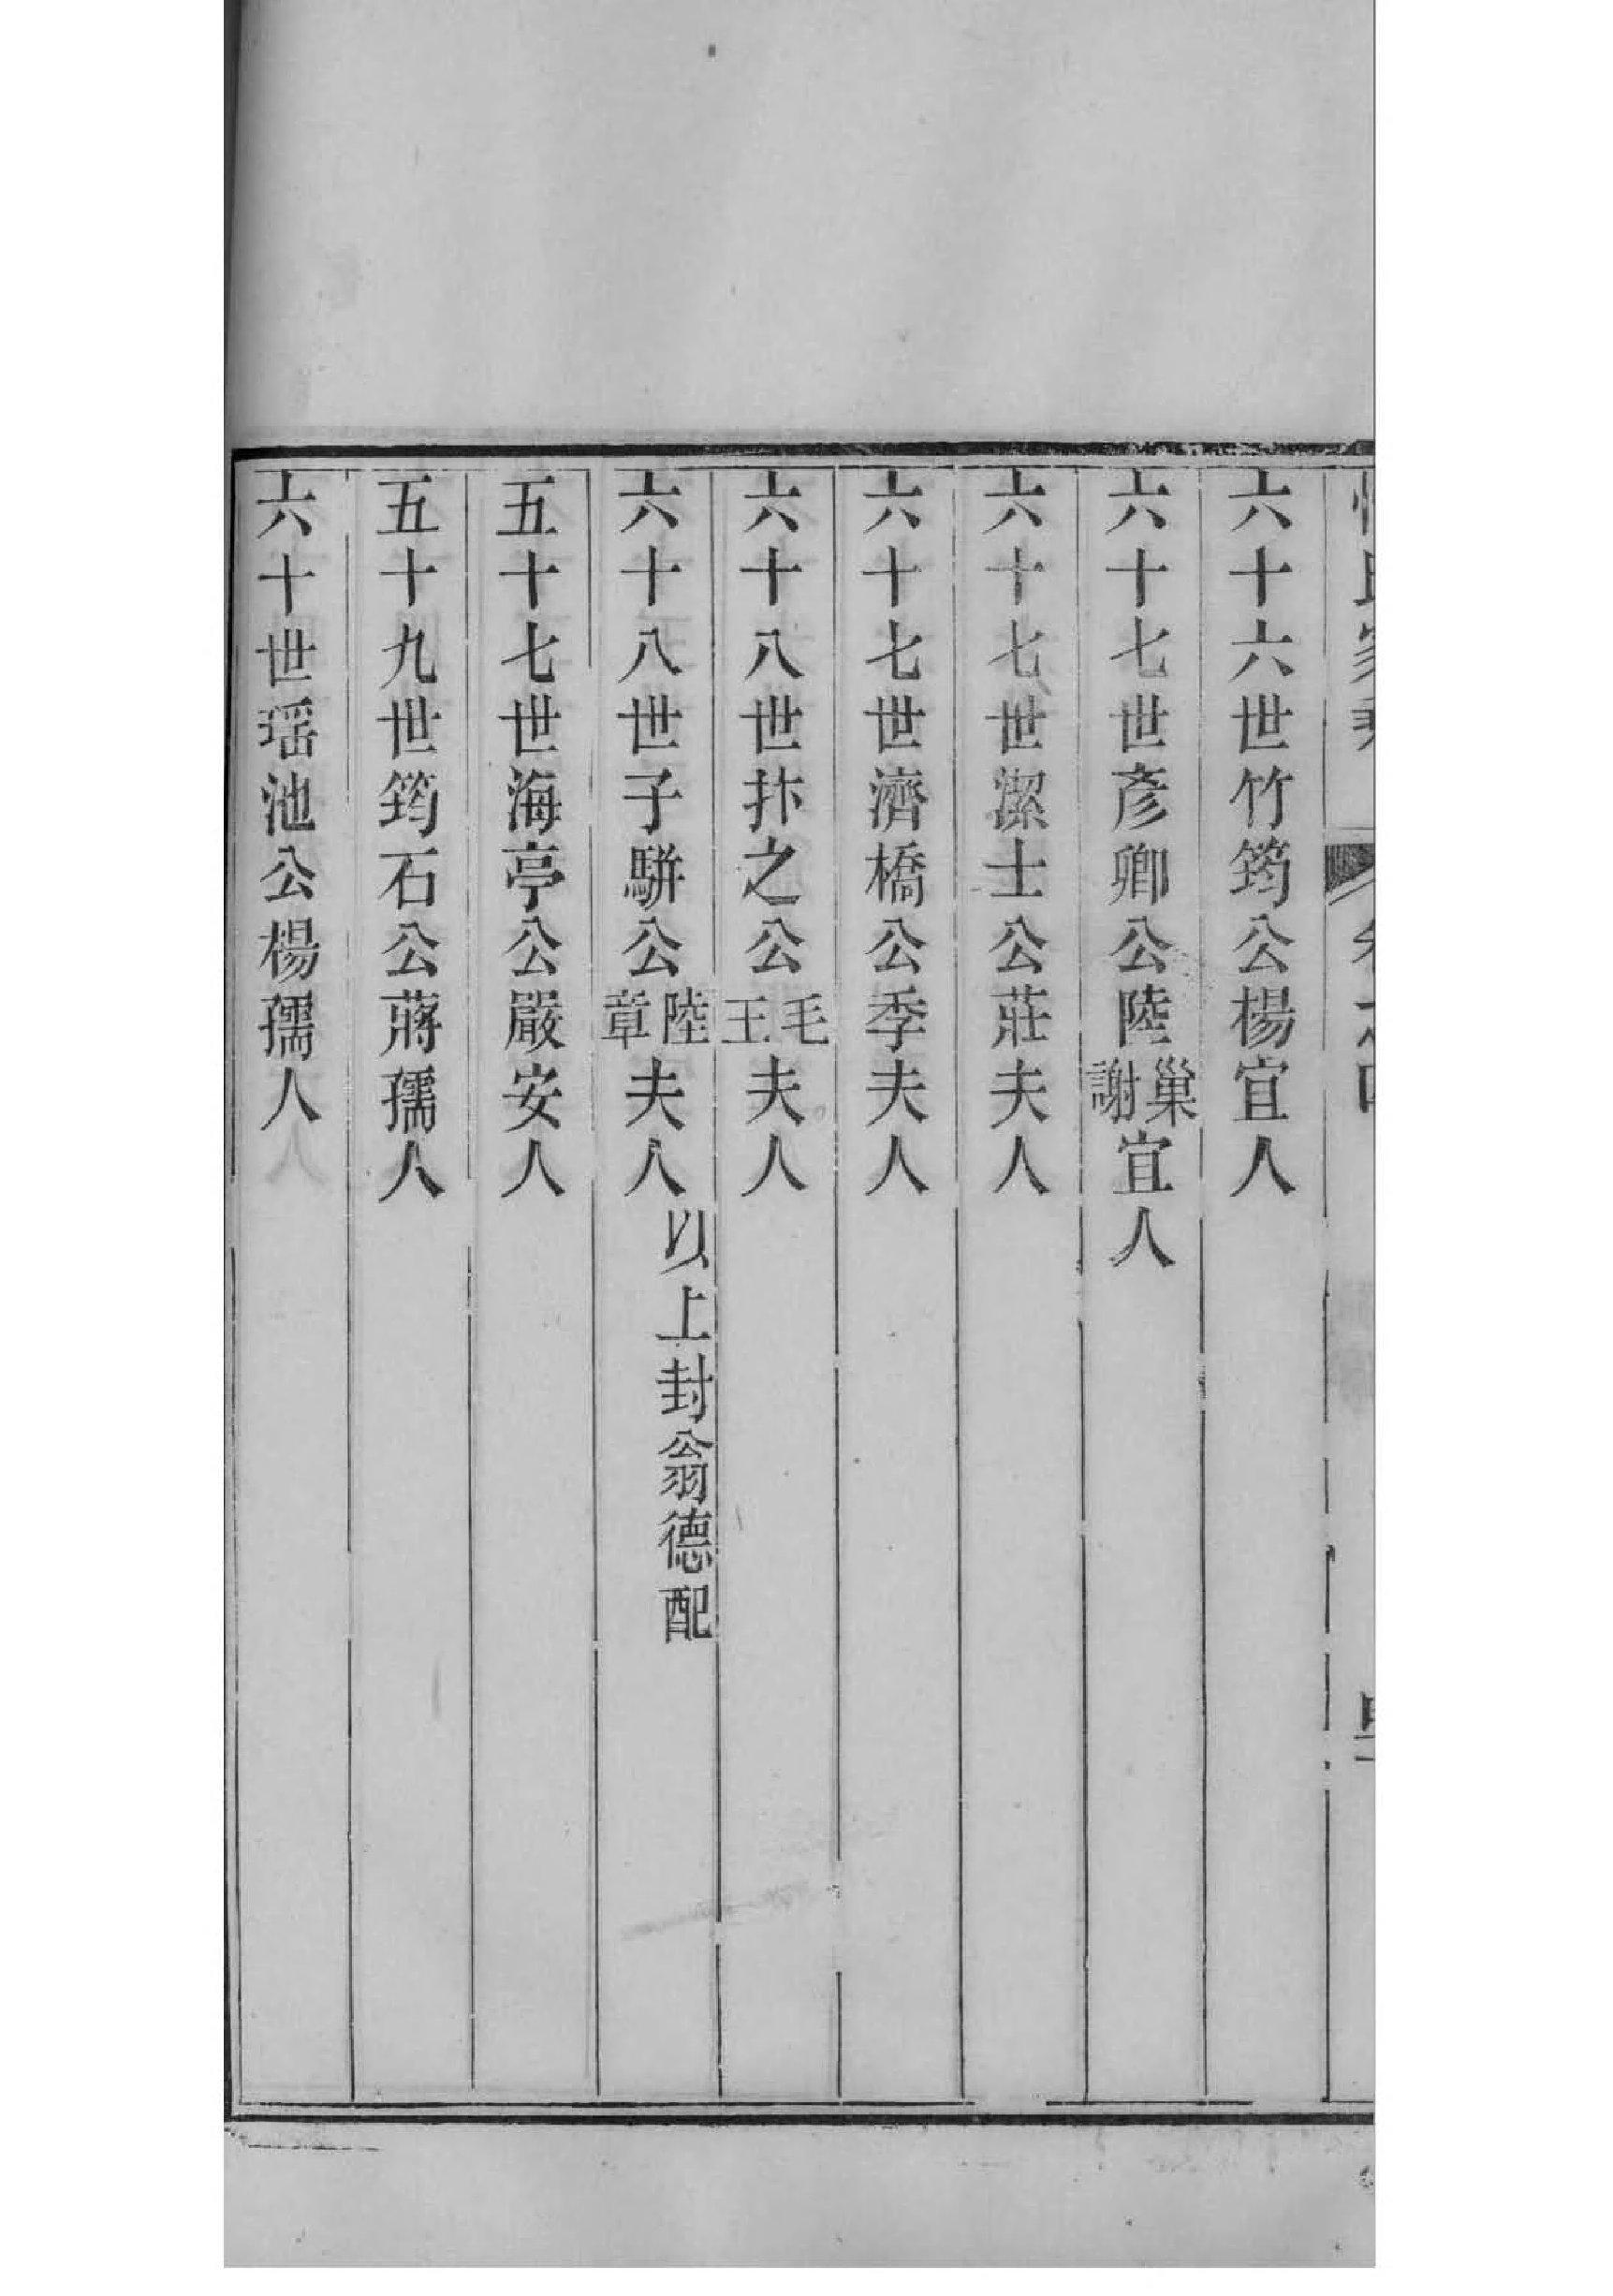 六十六世竹筠公楊宜人
六十七世彥卿公陸巢謝宜人
六十七世潔士公莊夫人
六十七世濟橋公季夫人
六十八世抃之公毛王夫人
六十八世子駢公陸章夫人以上封翁德配
五十七世海亭公嚴安人
五十九世筠石公蔣孺人
六十世瑶池公楊孺人